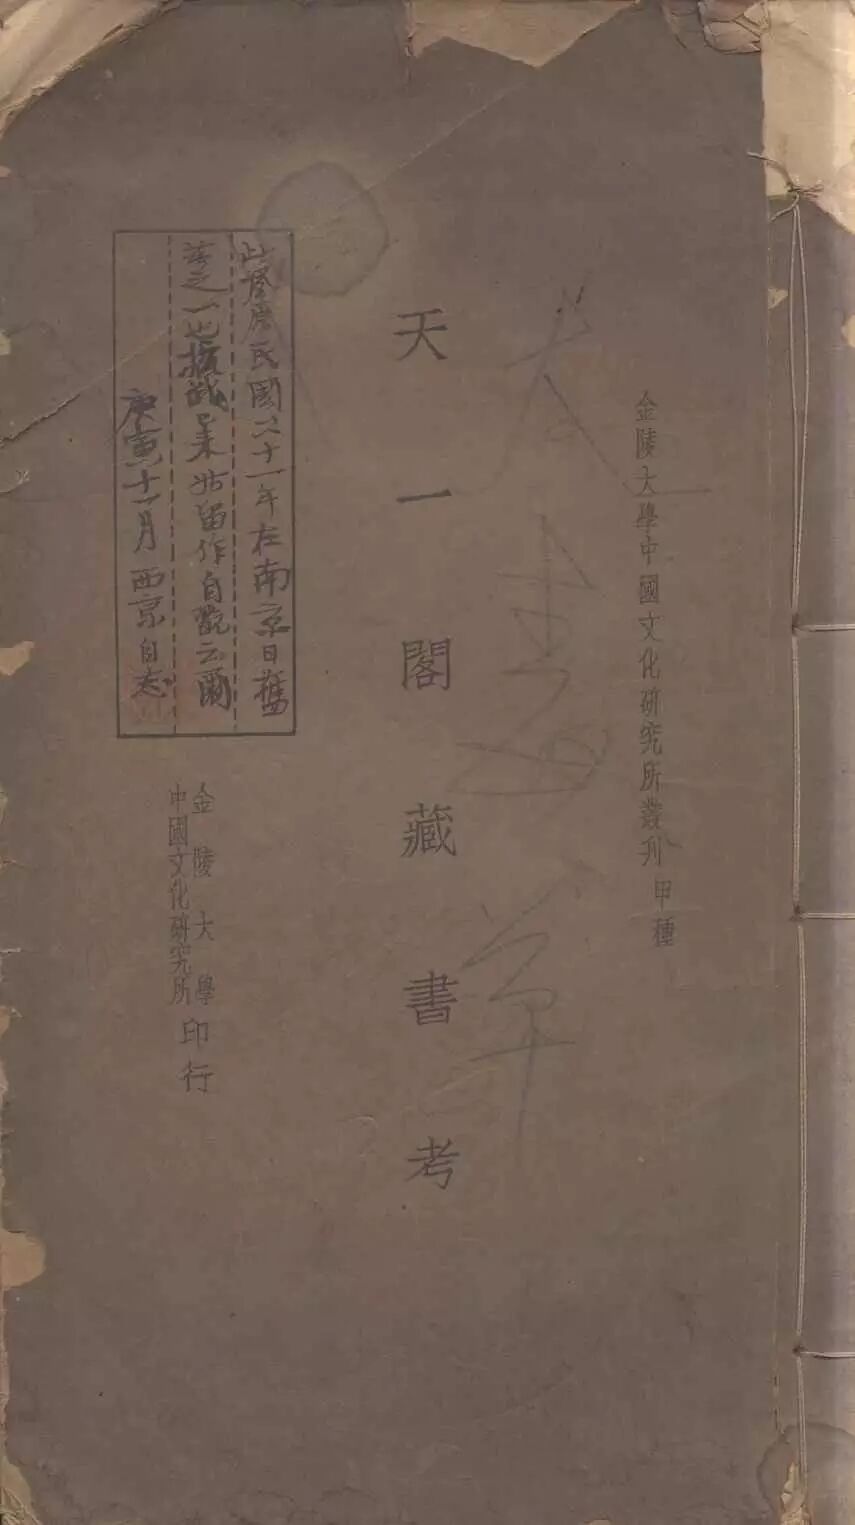 金陵大學中國文化研究所叢刊甲種
天一閣藏書考
此 民國二十一年在南京日舊
之一也 來始留作自觀云爾
庚寅十一月西京自志
金陵大學
中國文化研究所
印行